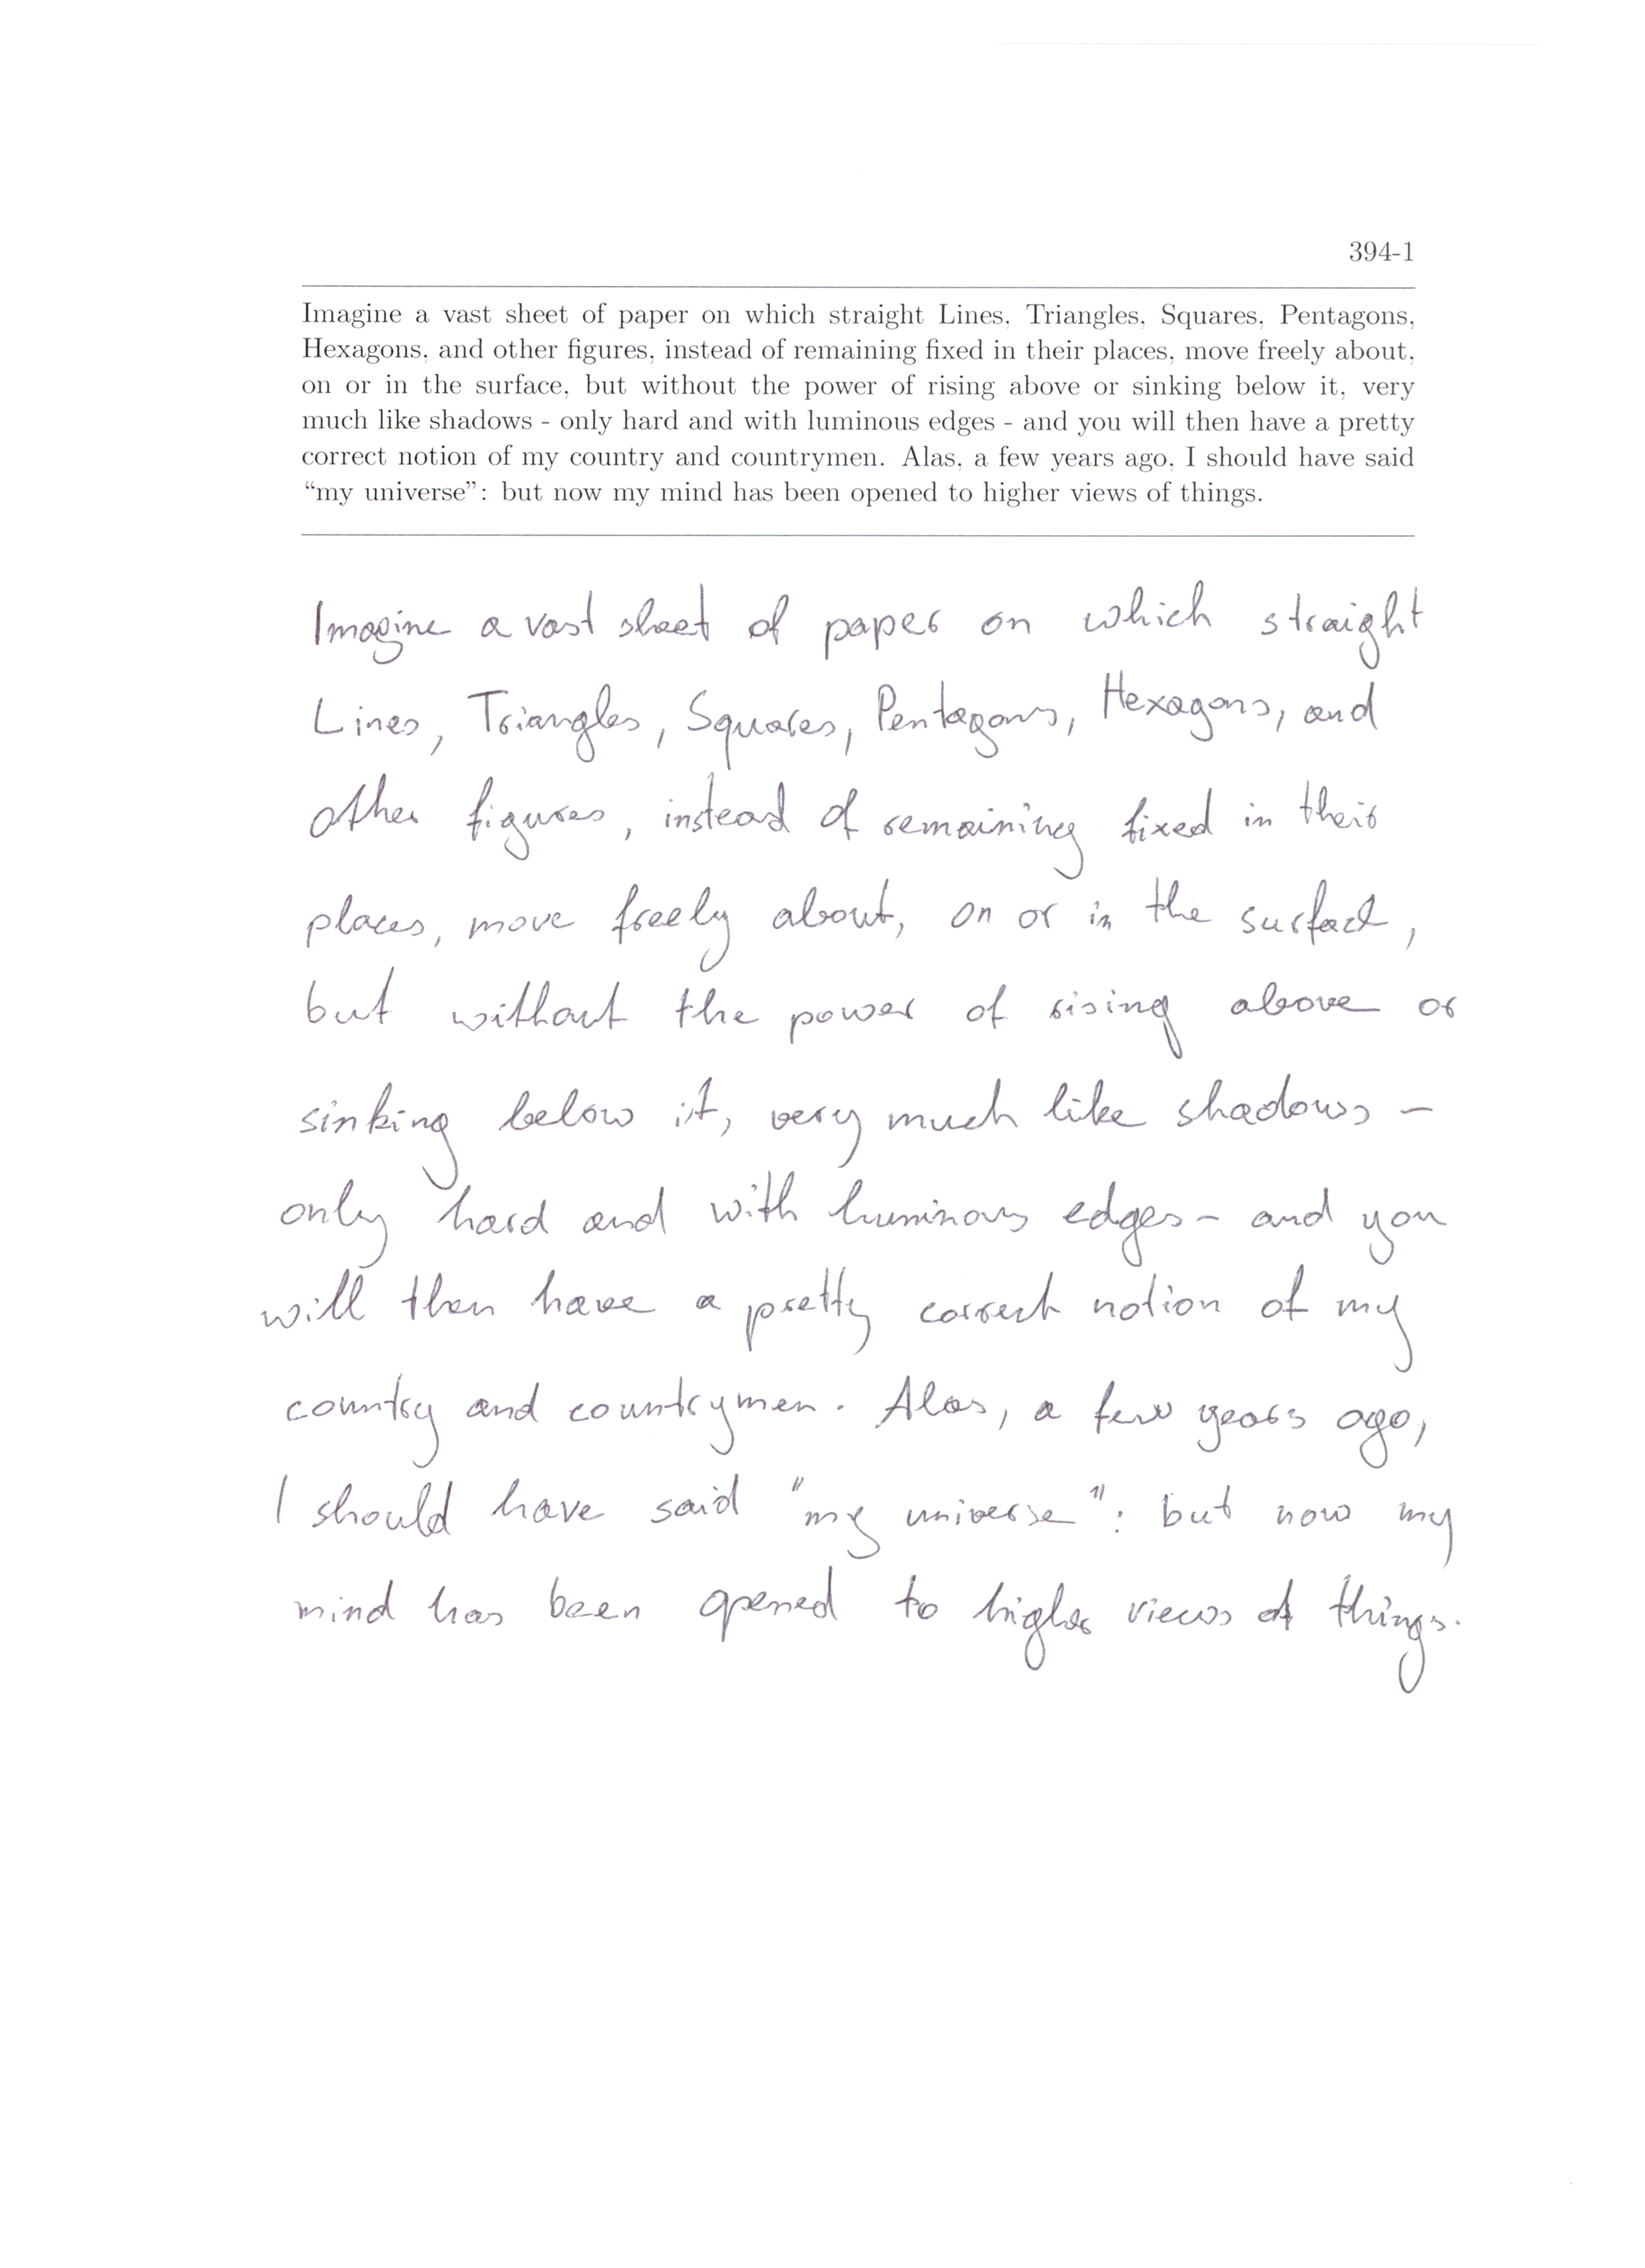 394-1
Imagine a vast sheet of paper on which straight Lines, Triangles, Squares, Pentagons,
Hexagons, and other figures, instead of remaining fixed in their places, move freely about,
on or in the surface, but without the power of rising above or sinking below it, very
much like shadows - only hard and with luminous edges - and you will then have a pretty
correct notion of my country and countrymen. Alas, a few years ago, I should have said
“my universe”: but now my mind has been opened to higher views of things.
Imagine a vast sheet of paper on which straight
Lines, Triangles, Squares, Pentagons, Hexagons, and
other figures, instead of remaining fixed in their
places, move freely about, on or in the surface,
but without the power of rising above or
sinking below it, very much like shadows -
only hard and with luminous edges - and you
will then have a pretty correct notion of my
country and countrymen. Alas, a few years ago,
I should have said "my universe": but now my
mind has been opened to higher views of things.